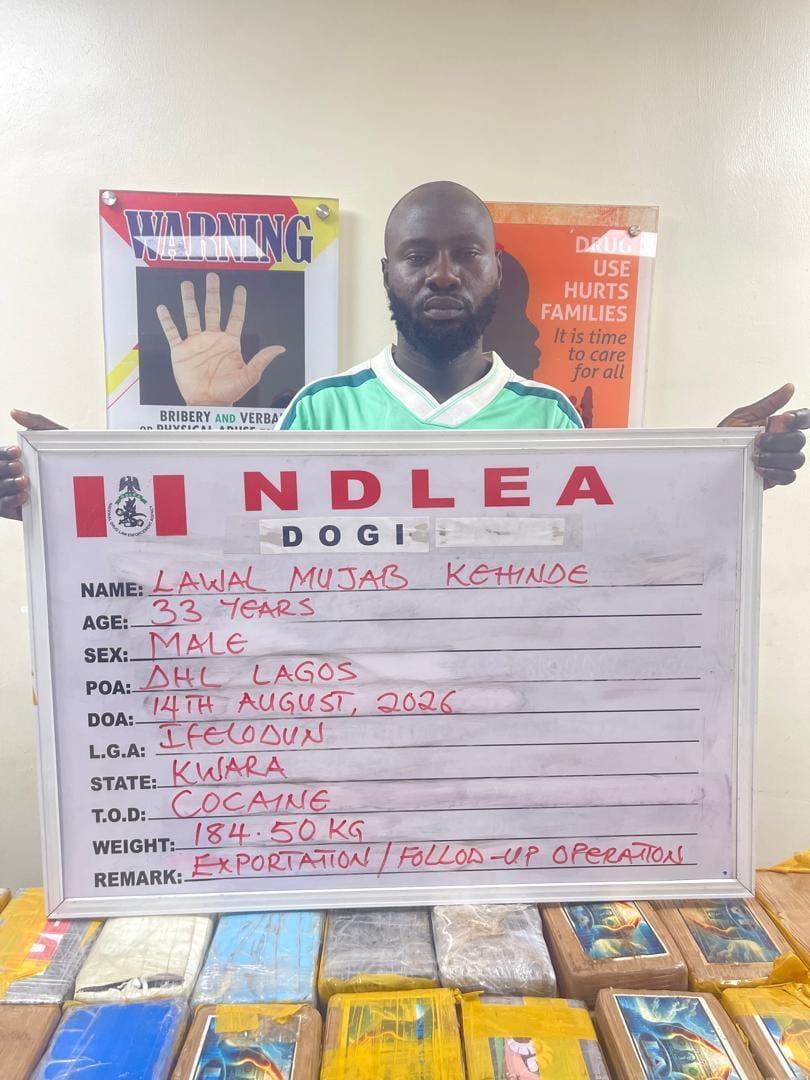 WARNING
BRIBERY AND VERBA
OR PHYSICAL ABUSE
DRUG
USE
HURTS
FAMILIES
It is time
to care
for all
NDLEA
DOGI
NAME: LAWAL MUJAB KEHINDE
AGE: 33 YEARS
SEX: MALE
POA: DHL LAGOS
DOA: 14TH AUGUST, 2026
L.G.A: IFELODUN
STATE: KWARA
T.O.D: COCAINE
WEIGHT: 184.50 KG
REMARK: EXPORTATION / FOLLOD-UP OPERATION